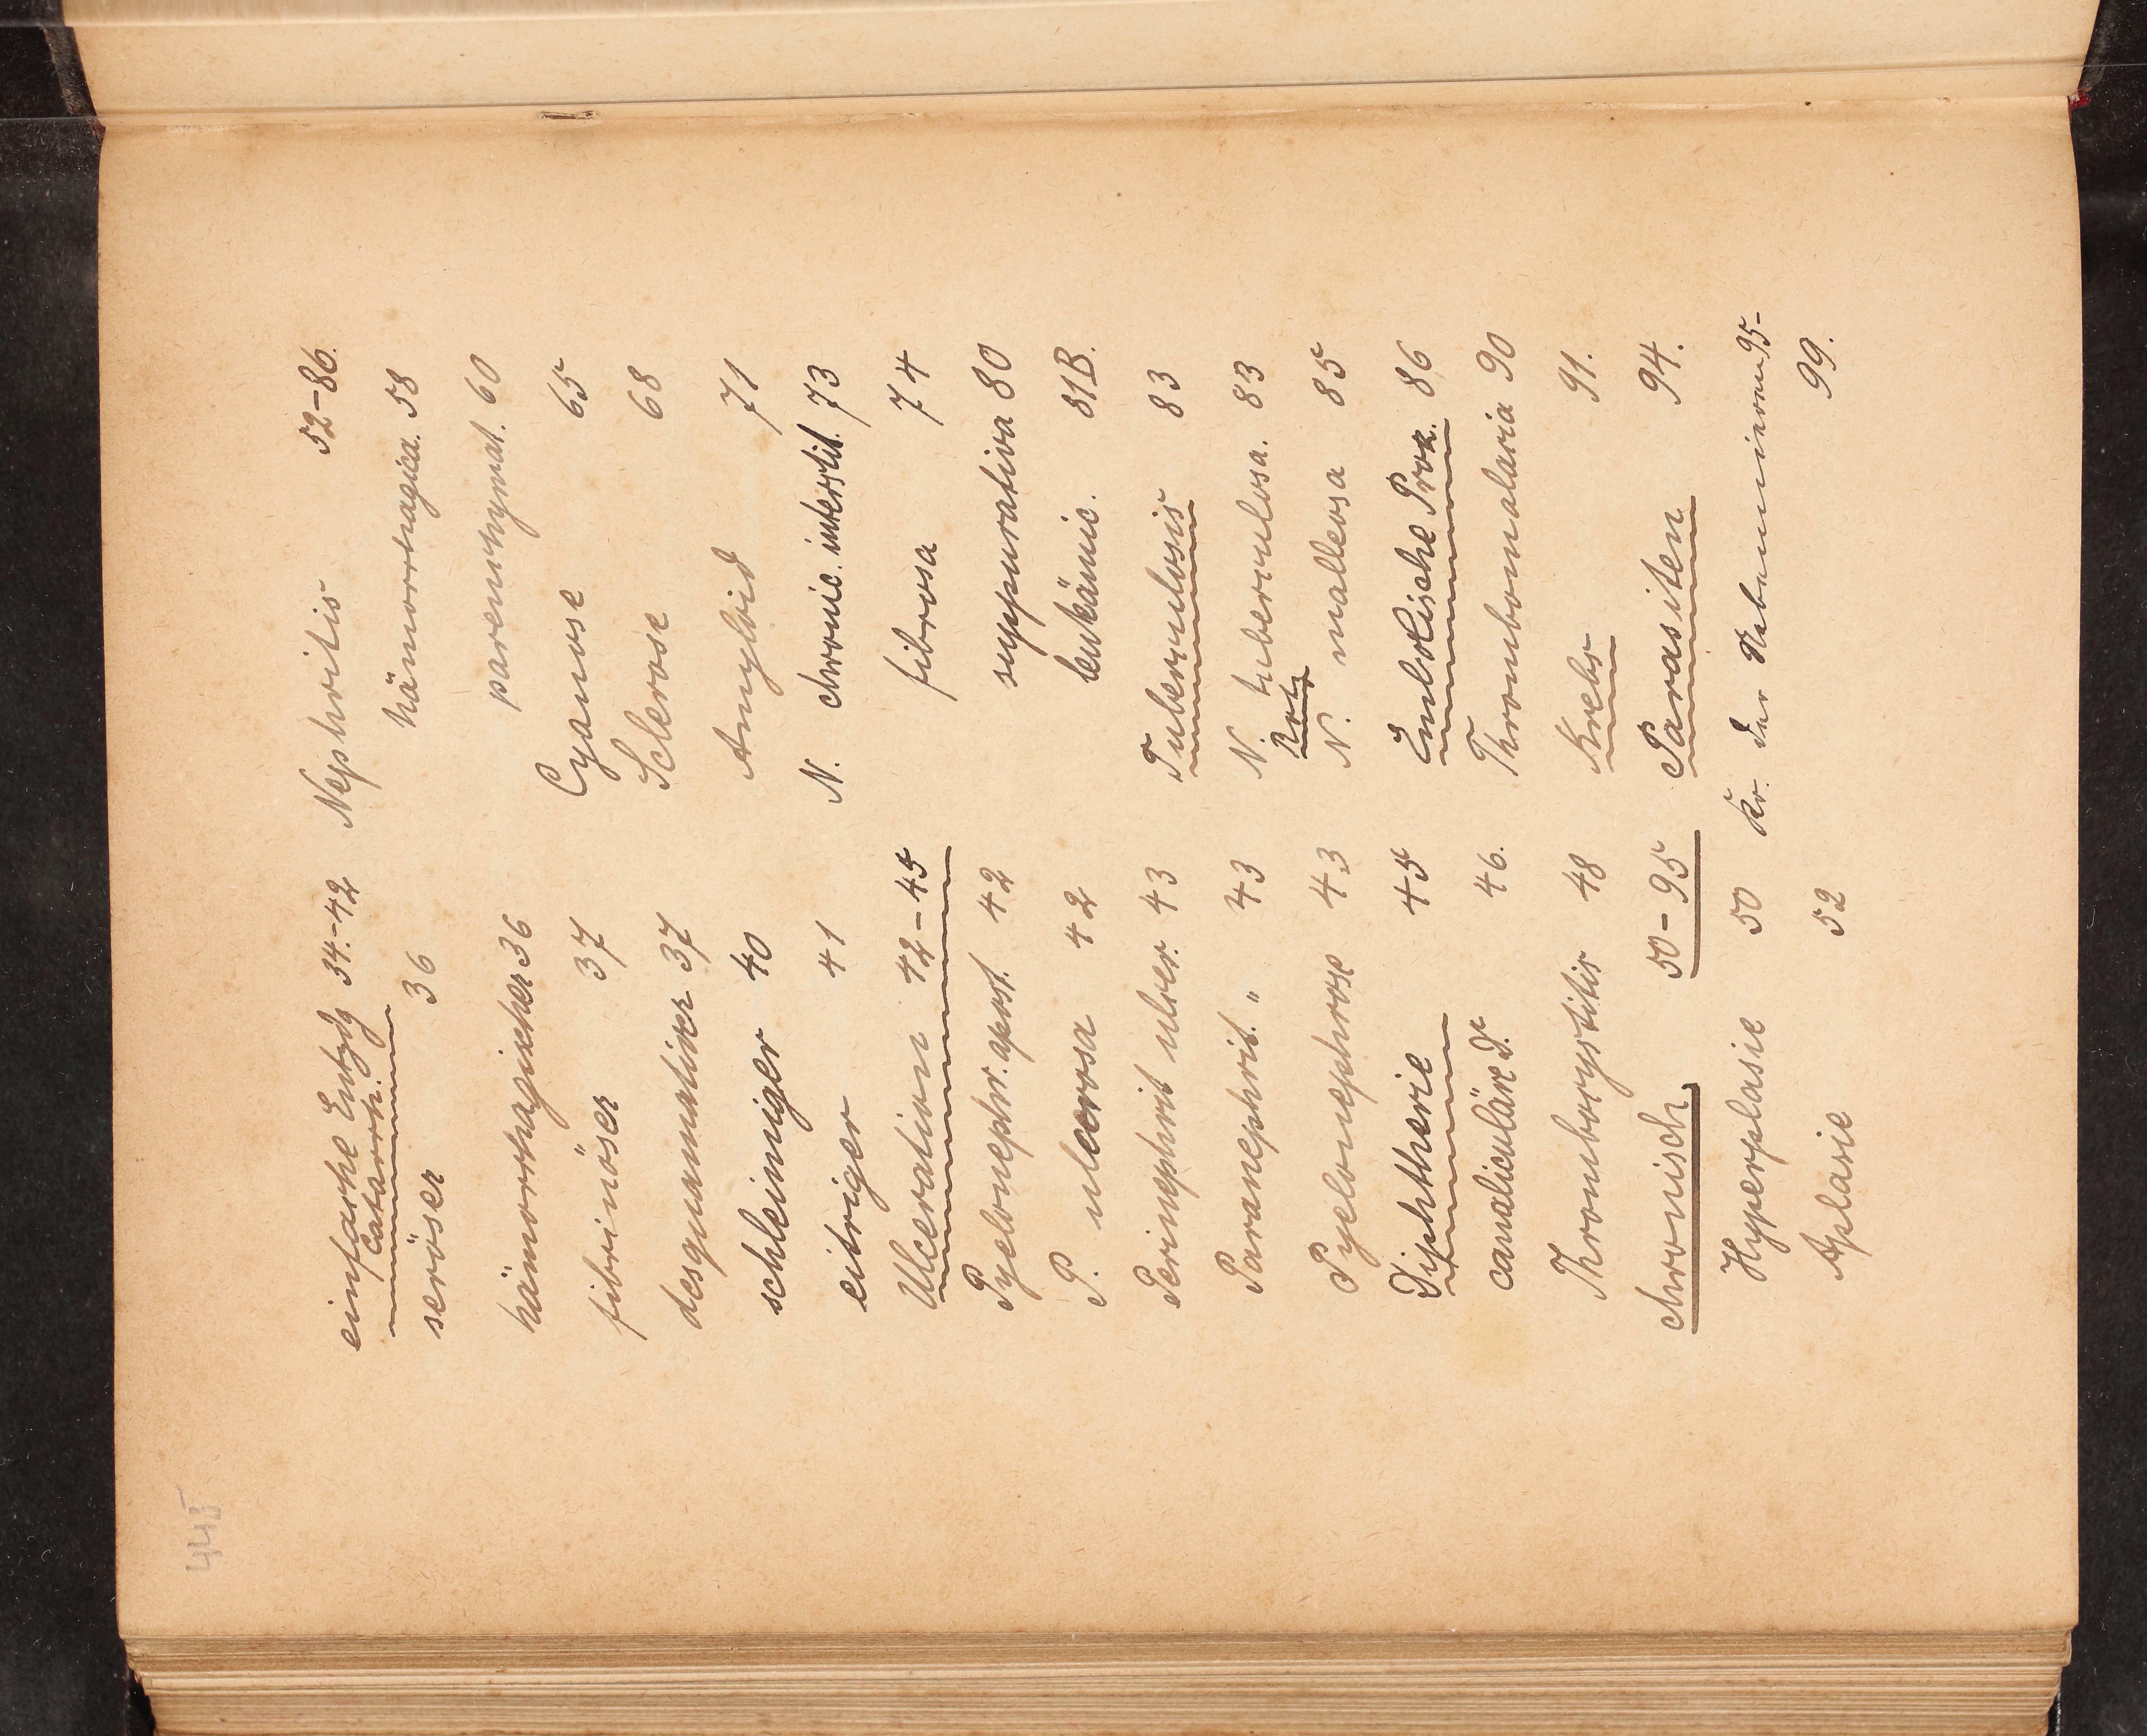 445
einfache Entzdg 34.-42
Catarrh.
seröser 36
hämorrhagischer 36
fibrinöser 37
desquamativer 37
schleimiger 40
eitriger 41
Ulceration 42-45
Pyelonephr. apost. 42
P. ulcerosa 42
Perinephrit ulcer. 43
Paranephrit. „ 43
Pyelonephrose 43
Diphtherie 45
canaliculäre D. 46.
Thrombocystitis 48
chronisch 50-95
Hyperplasie 50
Aplasie 52
Nephritis 52-86.
hämorrhagica. 58
parenchymat. 60
Cyanose 65
Sclerose 68
Amyloid 71
N. chronic. interstit. 73
fibrosa 74
suppurativa 80
leukämic. 81B.
Tuberculosis 83
N. tuberculosa. 83
Rotz
N. malleosa 85
Embolische Proz. 86
Thrombomalacia 90
Krebs 91.
Parasiten 94.
Kr. der Nebennieren 95-
99.